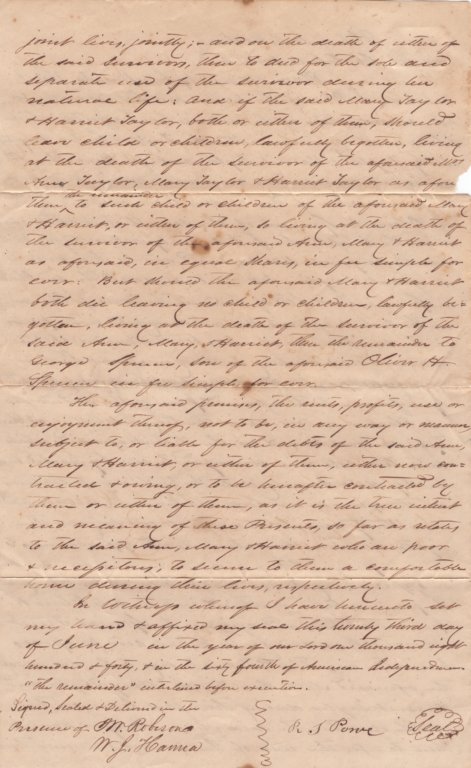 joint lives, jointly; and on the death of either of
the said survivors, then to and for the sole and
separate use of the survivor during her
natural life; and if the said Mary Taylor
& Harriet Taylor, both or either of them, should
leave child or children, lawfully begotten, living
at the death of the survivor of the aforesaid Mrs
Ann Taylor, Mary Taylor & Harriet Taylor as afore
the remainder
then to such child or children of the aforesaid Mary
& Harriet, or either of them, so living at the death of
the survivor of the aforesaid Ann, Mary & Harriet
as aforesaid, in equal shares, in fee simple for
ever: But should the aforesaid Mary & Harriet
both die leaving no child or children, lawfully be-
gotten, living at the death of the survivor of the
said Ann, Mary, & Harriet, then the remainder to
George Spence, son of the aforesaid Oliver H
Spence in fee simple for ever.
The aforesaid premises, the rents, profits, use or
enjoyment thereof, not to be, in any way or manner
subject to, or liable for the debts of the said Ann,
Mary & Harriet, or either of them, either now con-
tracted & owing, or to be hereafter contracted by
them or either of them, as it is the true intent
and meaning of these Presents, so far as relates
to the said Ann, Mary & Harriet who are poor
& necessitous, to secure to them a comfortable
home during their lives, respectively.
In Witness whereof I have hereunto set
my hand & affixed my seal this twenty third day
of June in the year of our Lord one thousand eight
hundred & forty, & in the sixty fourth of American Independence.
"the remainder" interlined before execution.
Signed, Sealed & Delivered in the
Presence of W. Roberson
W. J. Hanna
R S Powe
Seal